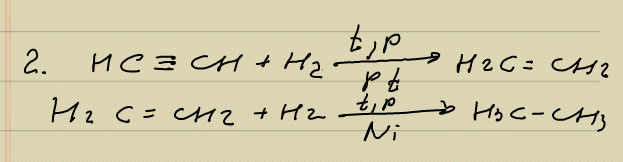 2. HC ≡ CH + H₂ —t,p/pt→ H₂C = CH₂
H₂C = CH₂ + H₂ —t,p/Ni→ H₃C-CH₃